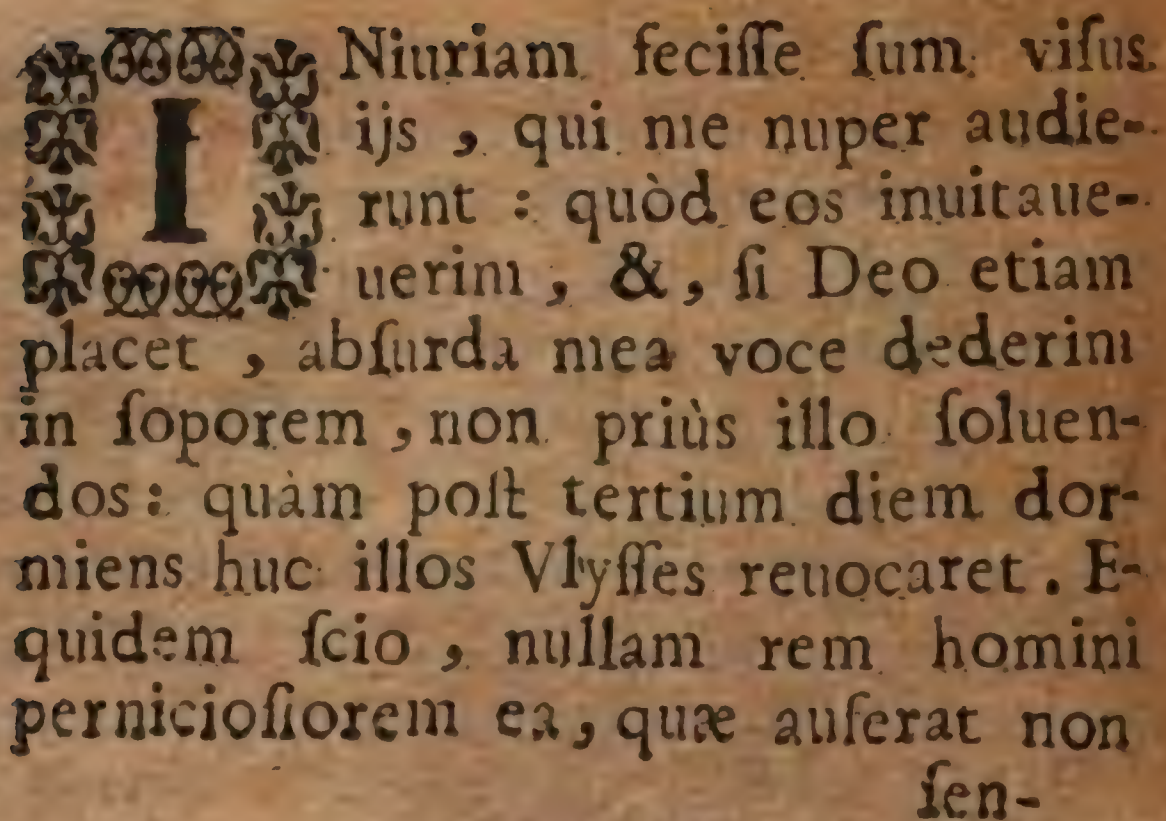 INiuriam feciſſe ſum viſus
ijs, qui me nuper audie-
runt: quòd eos inuitaue-
uerim, &, ſi Deo etiam
placet, abſurda mea voce dederim
in ſoporem, non priùs illo ſoluen-
dos: quàm poſt tertium diem dor-
miens huc illos Vlyſſes reuocaret. E-
quidem ſcio, nullam rem homini
pernicioſiorem ea, quæ auferat non
ſen-